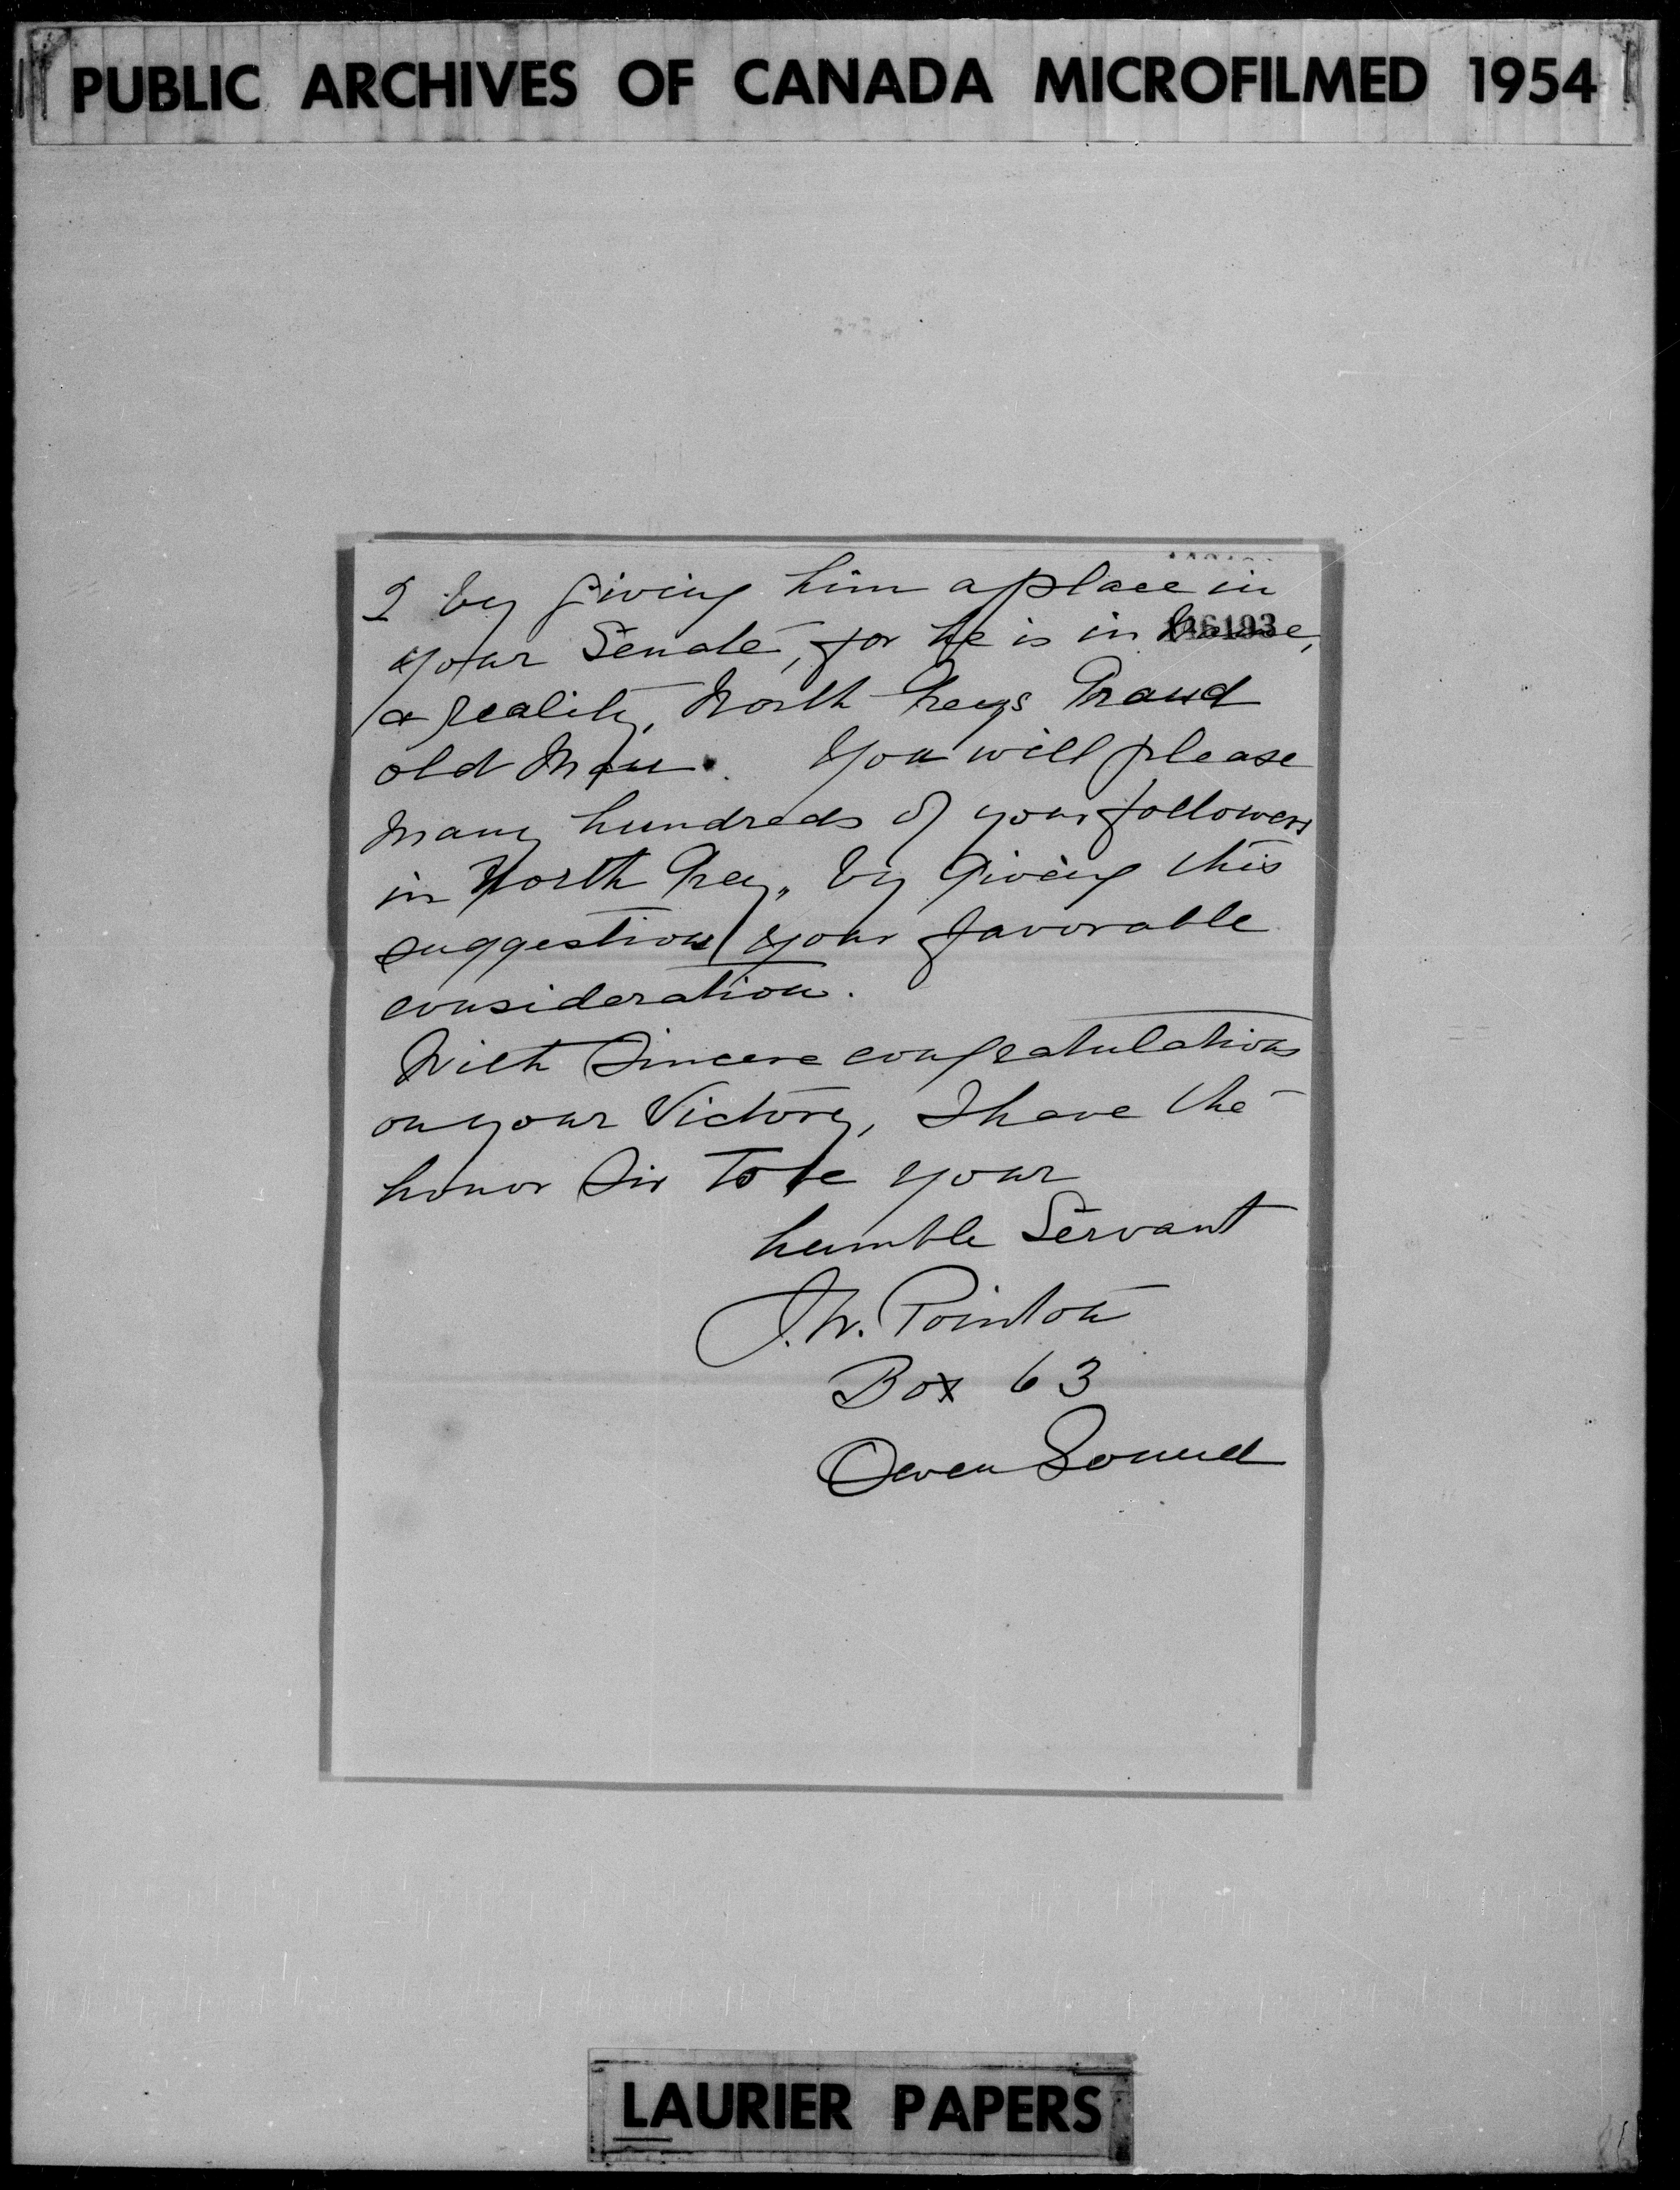 PUBLIC ARCHIVES OF CANADA MICROFILMED 1954
2 by Giving him a place in
your Senate, for he is in
146193
a reality, North Greys Grand
old Man. You will please
Many hundreds of your followers
in North Grey, by Giving this
suggestion your favorable
consideration.
With Sincere congratulations
on your Victory, I have the
honor Sir To be your
humble Servant
J. W. Pointon
Box 63
Owen Sound
LAURIER PAPERS